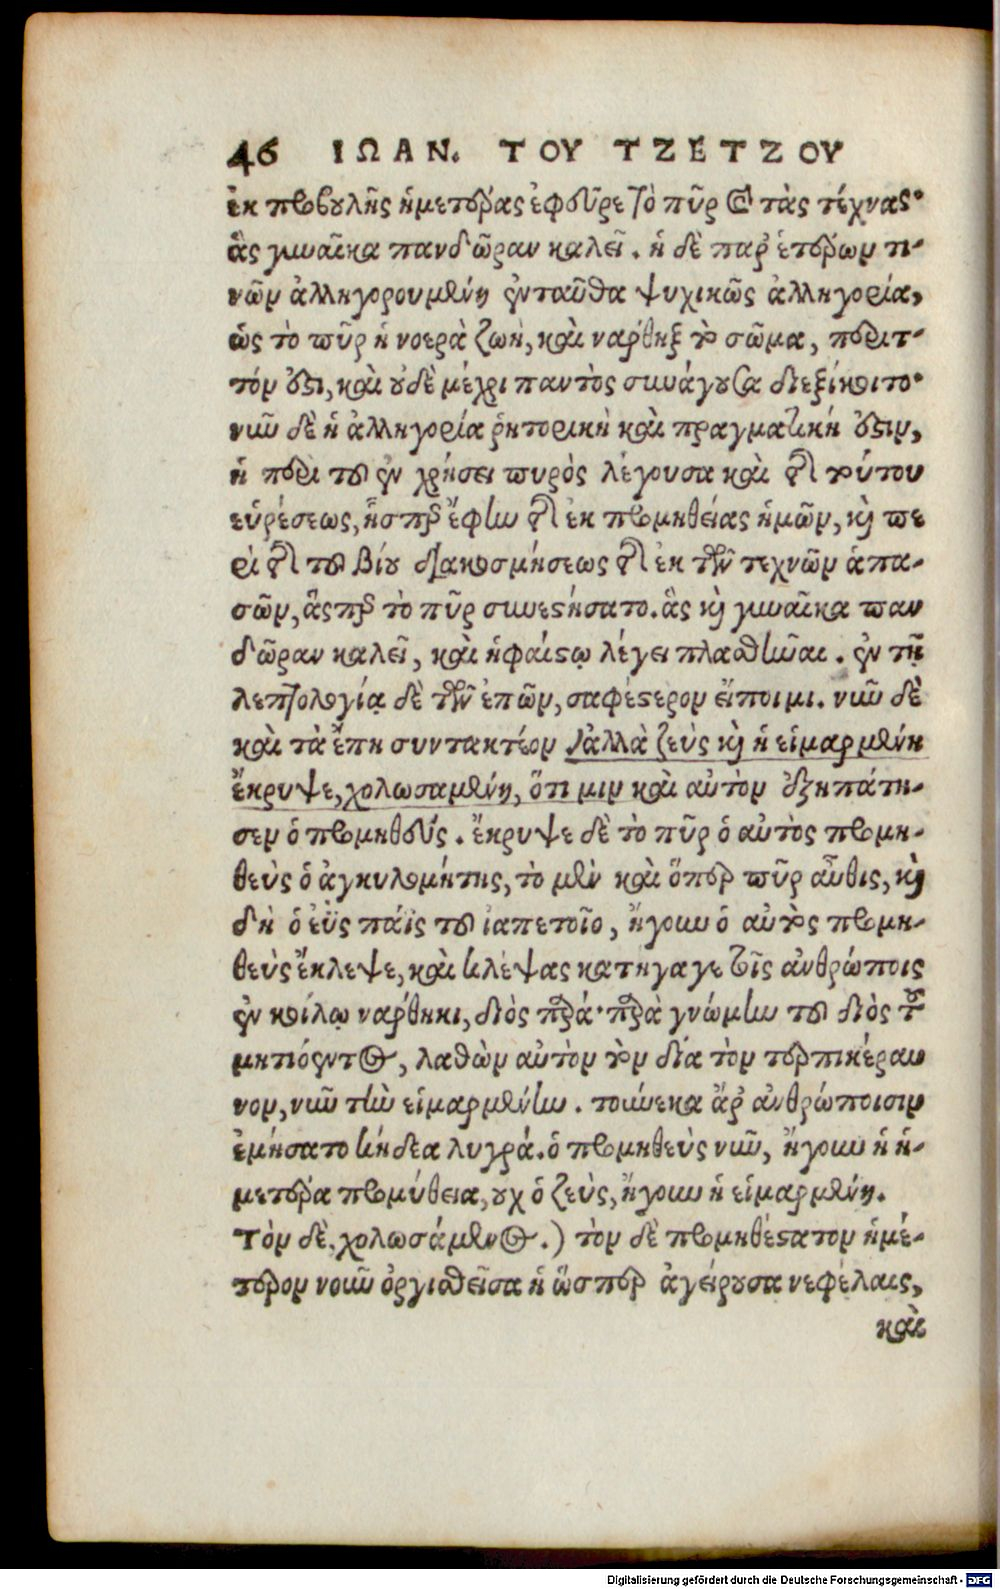 46 ΙΩΑΝ. ΤΟΥ ΤΖΕΤΖΟΥ
ἐκ προβουλῆς ἡμετέρας ἐφεῦρε τὸ πῦρ καὶ τὰς τέχνας·
ἃς γυναῖκα πανδῶραν καλεῖ. ἡ δὲ παρ' ἑτέρων τι-
νῶν ἀλληγορουμένη ἐνταῦθα ψυχικῶς ἀλληγορία,
ὡς τὸ πῦρ ἡ νοερὰ ζωὴ, καὶ νάρθηξ τὸ σῶμα, περιτ-
τόν ἐστι, καὶ οὐδὲ μέχρι παντὸς συνάγουσα διεξίκοιτο·
νῦν δὲ ἡ ἀλληγορία ῥητορικὴ καὶ πραγματική ἐστιν,
ἡ περὶ τοῦ ἐν χρήσει πυρὸς λέγουσα καὶ τῆς τούτου
εὑρέσεως, ἧσπερ ἔφην τῆς ἐκ προμηθείας ἡμῶν, καὶ πε
ρὶ τῆς τοῦ βίου διακοσμήσεως τῆς ἐκ τῶν τεχνῶν ἁπα-
σῶν, ἅσπερ τὸ πῦρ συνεστήσατο. ἃς καὶ γυναῖκα παν
δῶραν καλεῖ, καὶ ἡφαίστῳ λέγει πλασθῆναι. ἐν τῇ
λεπτολογίᾳ δὲ τῶν ἐπῶν, σαφέστερον εἴποιμι. νῦν δὲ
καὶ τὰ ἔπη συντακτέον ἀλλὰ ζεὺς καὶ ἡ εἱμαρμένη
ἔκρυψε, χολωσαμένη, ὅτι μιν καὶ αὐτὸν ἐξηπάτη-
σεν ὁ προμηθεύς. ἔκρυψε δὲ τὸ πῦρ ὁ αὐτὸς προμη-
θεὺς ὁ ἀγκυλομήτης, τὸ μὲν καὶ ὅπερ πῦρ αὖθις, καὶ
δὴ ὁ ἐῢς πάϊς τοῦ ἰαπετοῖο, ἤγουν ὁ αὐτὸς προμη-
θεὺς ἔκλεψε, καὶ κλέψας κατήγαγε τοῖς ἀνθρώποις
ἐν κοίλῳ νάρθηκι, διὸς παρά· παρὰ γνώμην τοῦ διὸς τοῦ
μητιόεντος, λαθὼν αὐτὸν τὸν δία τὸν τερπικέραυ
νον, νῦν τὴν εἱμαρμένην. τοὔνεκα ἄρ' ἀνθρώποισιν
ἐμήσατο κήδεα λυγρά. ὁ προμηθεὺς νῦν, ἤγουν ἡ ἡ-
μετέρα προμύθεια, οὐχ ὁ ζεὺς, ἤγουν ἡ εἱμαρμένη.
Τὸν δὲ, χολωσάμενος.) τὸν δὲ προμηθέστατον ἡμέ-
τερον νοῦν ὀργισθεῖσα ἡ ὥσπερ ἀγείρουσα νεφέλαις,
καὶ
Digitalisierung gefördert durch die Deutsche Forschungsgemeinschaft - DFG